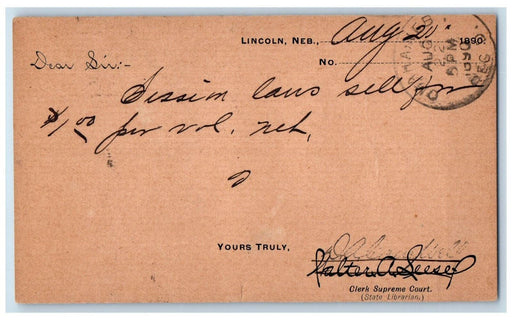 Lincoln, Neb., Aug 20 1890.
No.
Dear Sir:-
Session laws sell for
$1.00 per vol. net.
Yours truly,
Walter A. Leese
Clerk Supreme Court.
(State Librarian.)
AUG
5 PM
1890
REC'D